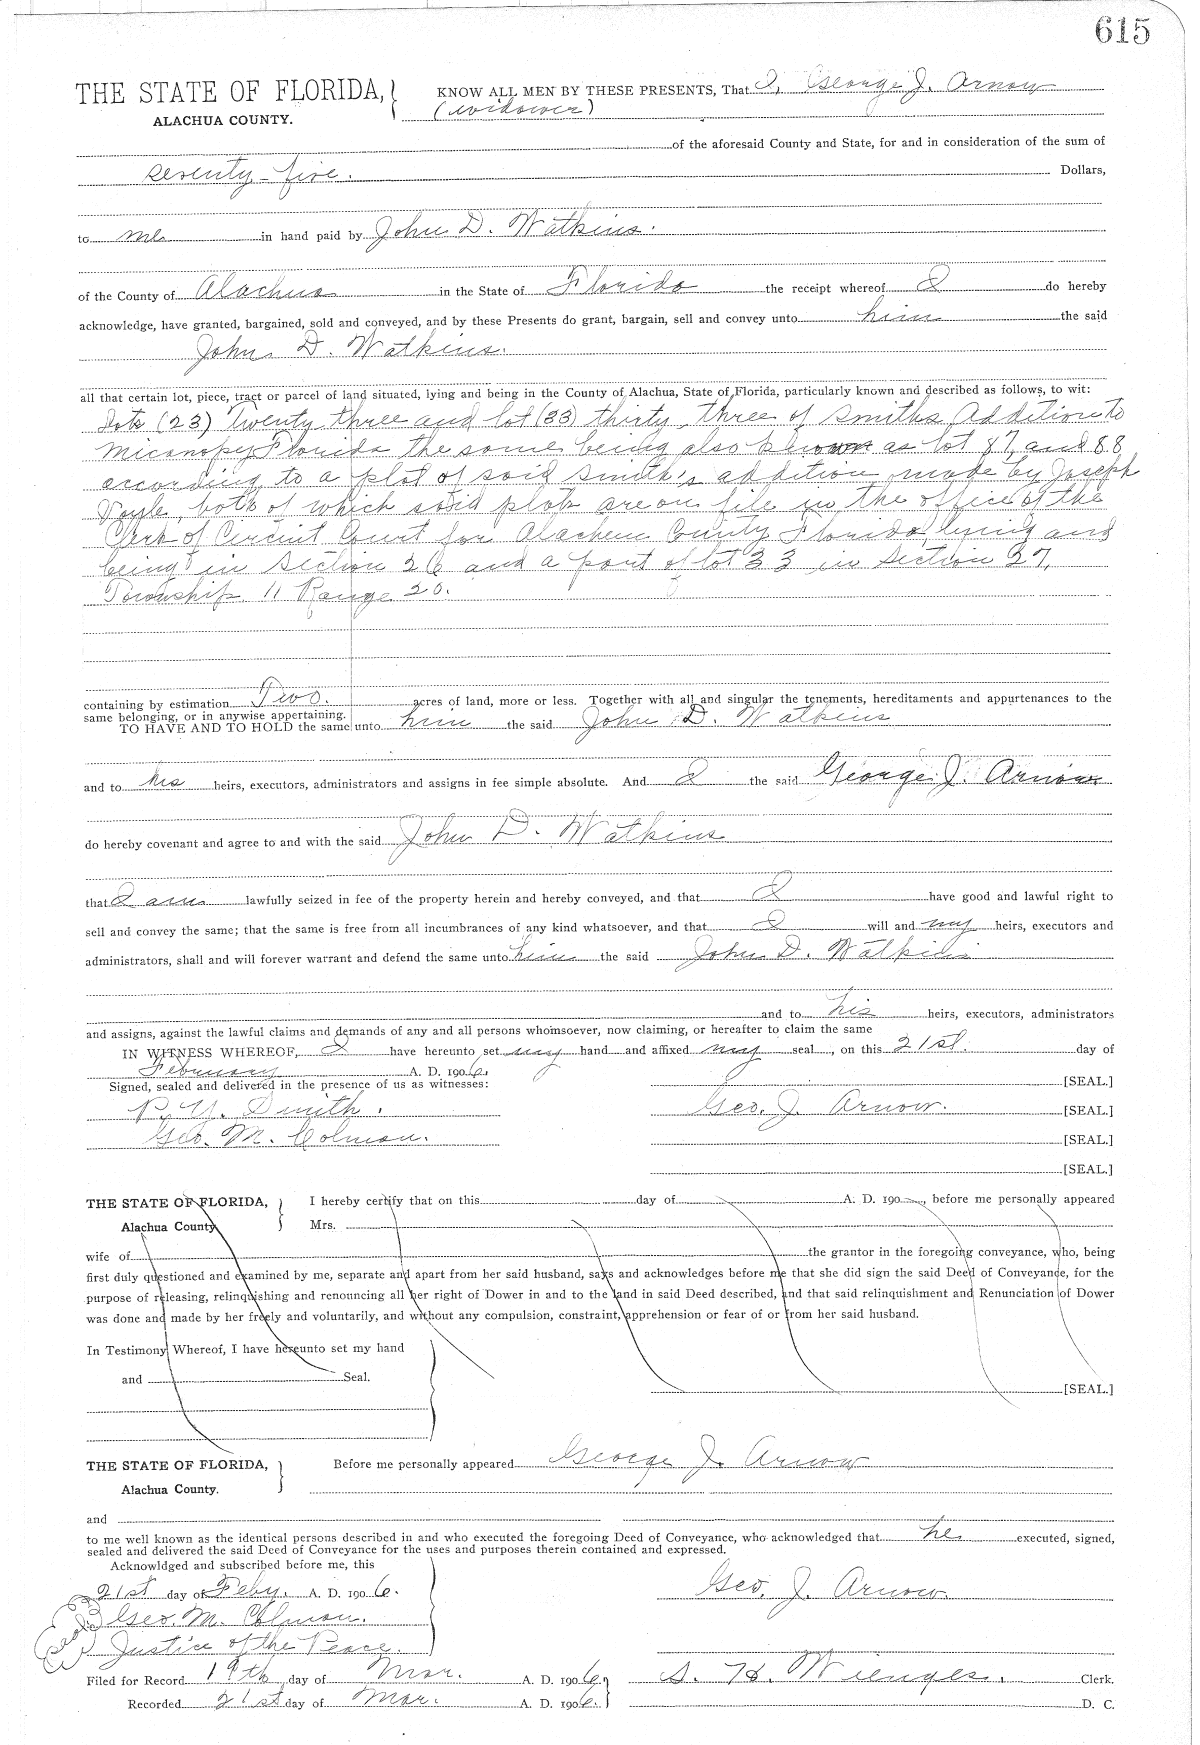 615
THE STATE OF FLORIDA, KNOW ALL MEN BY THESE PRESENTS, That I, George J. Arnow
ALACHUA COUNTY. (widower)
of the aforesaid County and State, for and in consideration of the sum of
seventy-five. Dollars,
to me in hand paid by John D. Watkins.
of the County of Alachua in the State of Florida the receipt whereof I do hereby
acknowledge, have granted, bargained, sold and conveyed, and by these Presents do grant, bargain, sell and convey unto him the said
John D. Watkins.
all that certain lot, piece, tract or parcel of land situated, lying and being in the County of Alachua, State of Florida, particularly known and described as follows, to wit:
Lots (23) Twenty three and lot (33) thirty three of Smiths Addition to
Micanopy Florida the same being also known as lot 87, and 88
according to a plot of said Smith's addition made by Joseph
Voyle, both of which said plats are on file in the office of the
Clerk of Circuit Court for Alachua County Florida, lying and
being in Section 26 and a part of lot 33 in Section 27,
Township 11 Range 20.
containing by estimation Two. acres of land, more or less. Together with all and singular the tenements, hereditaments and appurtenances to the
same belonging, or in anywise appertaining.
TO HAVE AND TO HOLD the same unto him the said John D. Watkins
and to his heirs, executors, administrators and assigns in fee simple absolute. And I the said George J. Arnow
do hereby covenant and agree to and with the said John D. Watkins
that I am lawfully seized in fee of the property herein and hereby conveyed, and that I have good and lawful right to
sell and convey the same; that the same is free from all incumbrances of any kind whatsoever, and that I will and my heirs, executors and
administrators, shall and will forever warrant and defend the same unto him the said John D. Watkins
and to his heirs, executors, administrators
and assigns, against the lawful claims and demands of any and all persons whomsoever, now claiming, or hereafter to claim the same
IN WITNESS WHEREOF, I have hereunto set my hand and affixed my seal, on this 21st. day of
February A. D. 1906. [SEAL.]
Signed, sealed and delivered in the presence of us as witnesses:
P. Y. Smith. Geo. J. Arnow. [SEAL.]
Geo. M. Colman. [SEAL.]
[SEAL.]
THE STATE OF FLORIDA, I hereby certify that on this day of A. D. 190 , before me personally appeared
Alachua County Mrs.
wife of the grantor in the foregoing conveyance, who, being
first duly questioned and examined by me, separate and apart from her said husband, says and acknowledges before me that she did sign the said Deed of Conveyance, for the
purpose of releasing, relinquishing and renouncing all her right of Dower in and to the land in said Deed described, and that said relinquishment and Renunciation of Dower
was done and made by her freely and voluntarily, and without any compulsion, constraint, apprehension or fear of or from her said husband.
In Testimony Whereof, I have hereunto set my hand
and Seal. [SEAL.]
THE STATE OF FLORIDA, Before me personally appeared George J. Arnow
Alachua County.
and
to me well known as the identical persons described in and who executed the foregoing Deed of Conveyance, who acknowledged that he executed, signed,
sealed and delivered the said Deed of Conveyance for the uses and purposes therein contained and expressed.
Acknowldged and subscribed before me, this
21st day of Feby. A. D. 1906. Geo. J. Arnow.
Seal Geo. M. Colman.
Justice of the Peace.
Filed for Record 19th day of Mar. A. D. 1906, S. H. Wienges. Clerk.
Recorded 21st day of Mar. A. D. 1906. D. C.